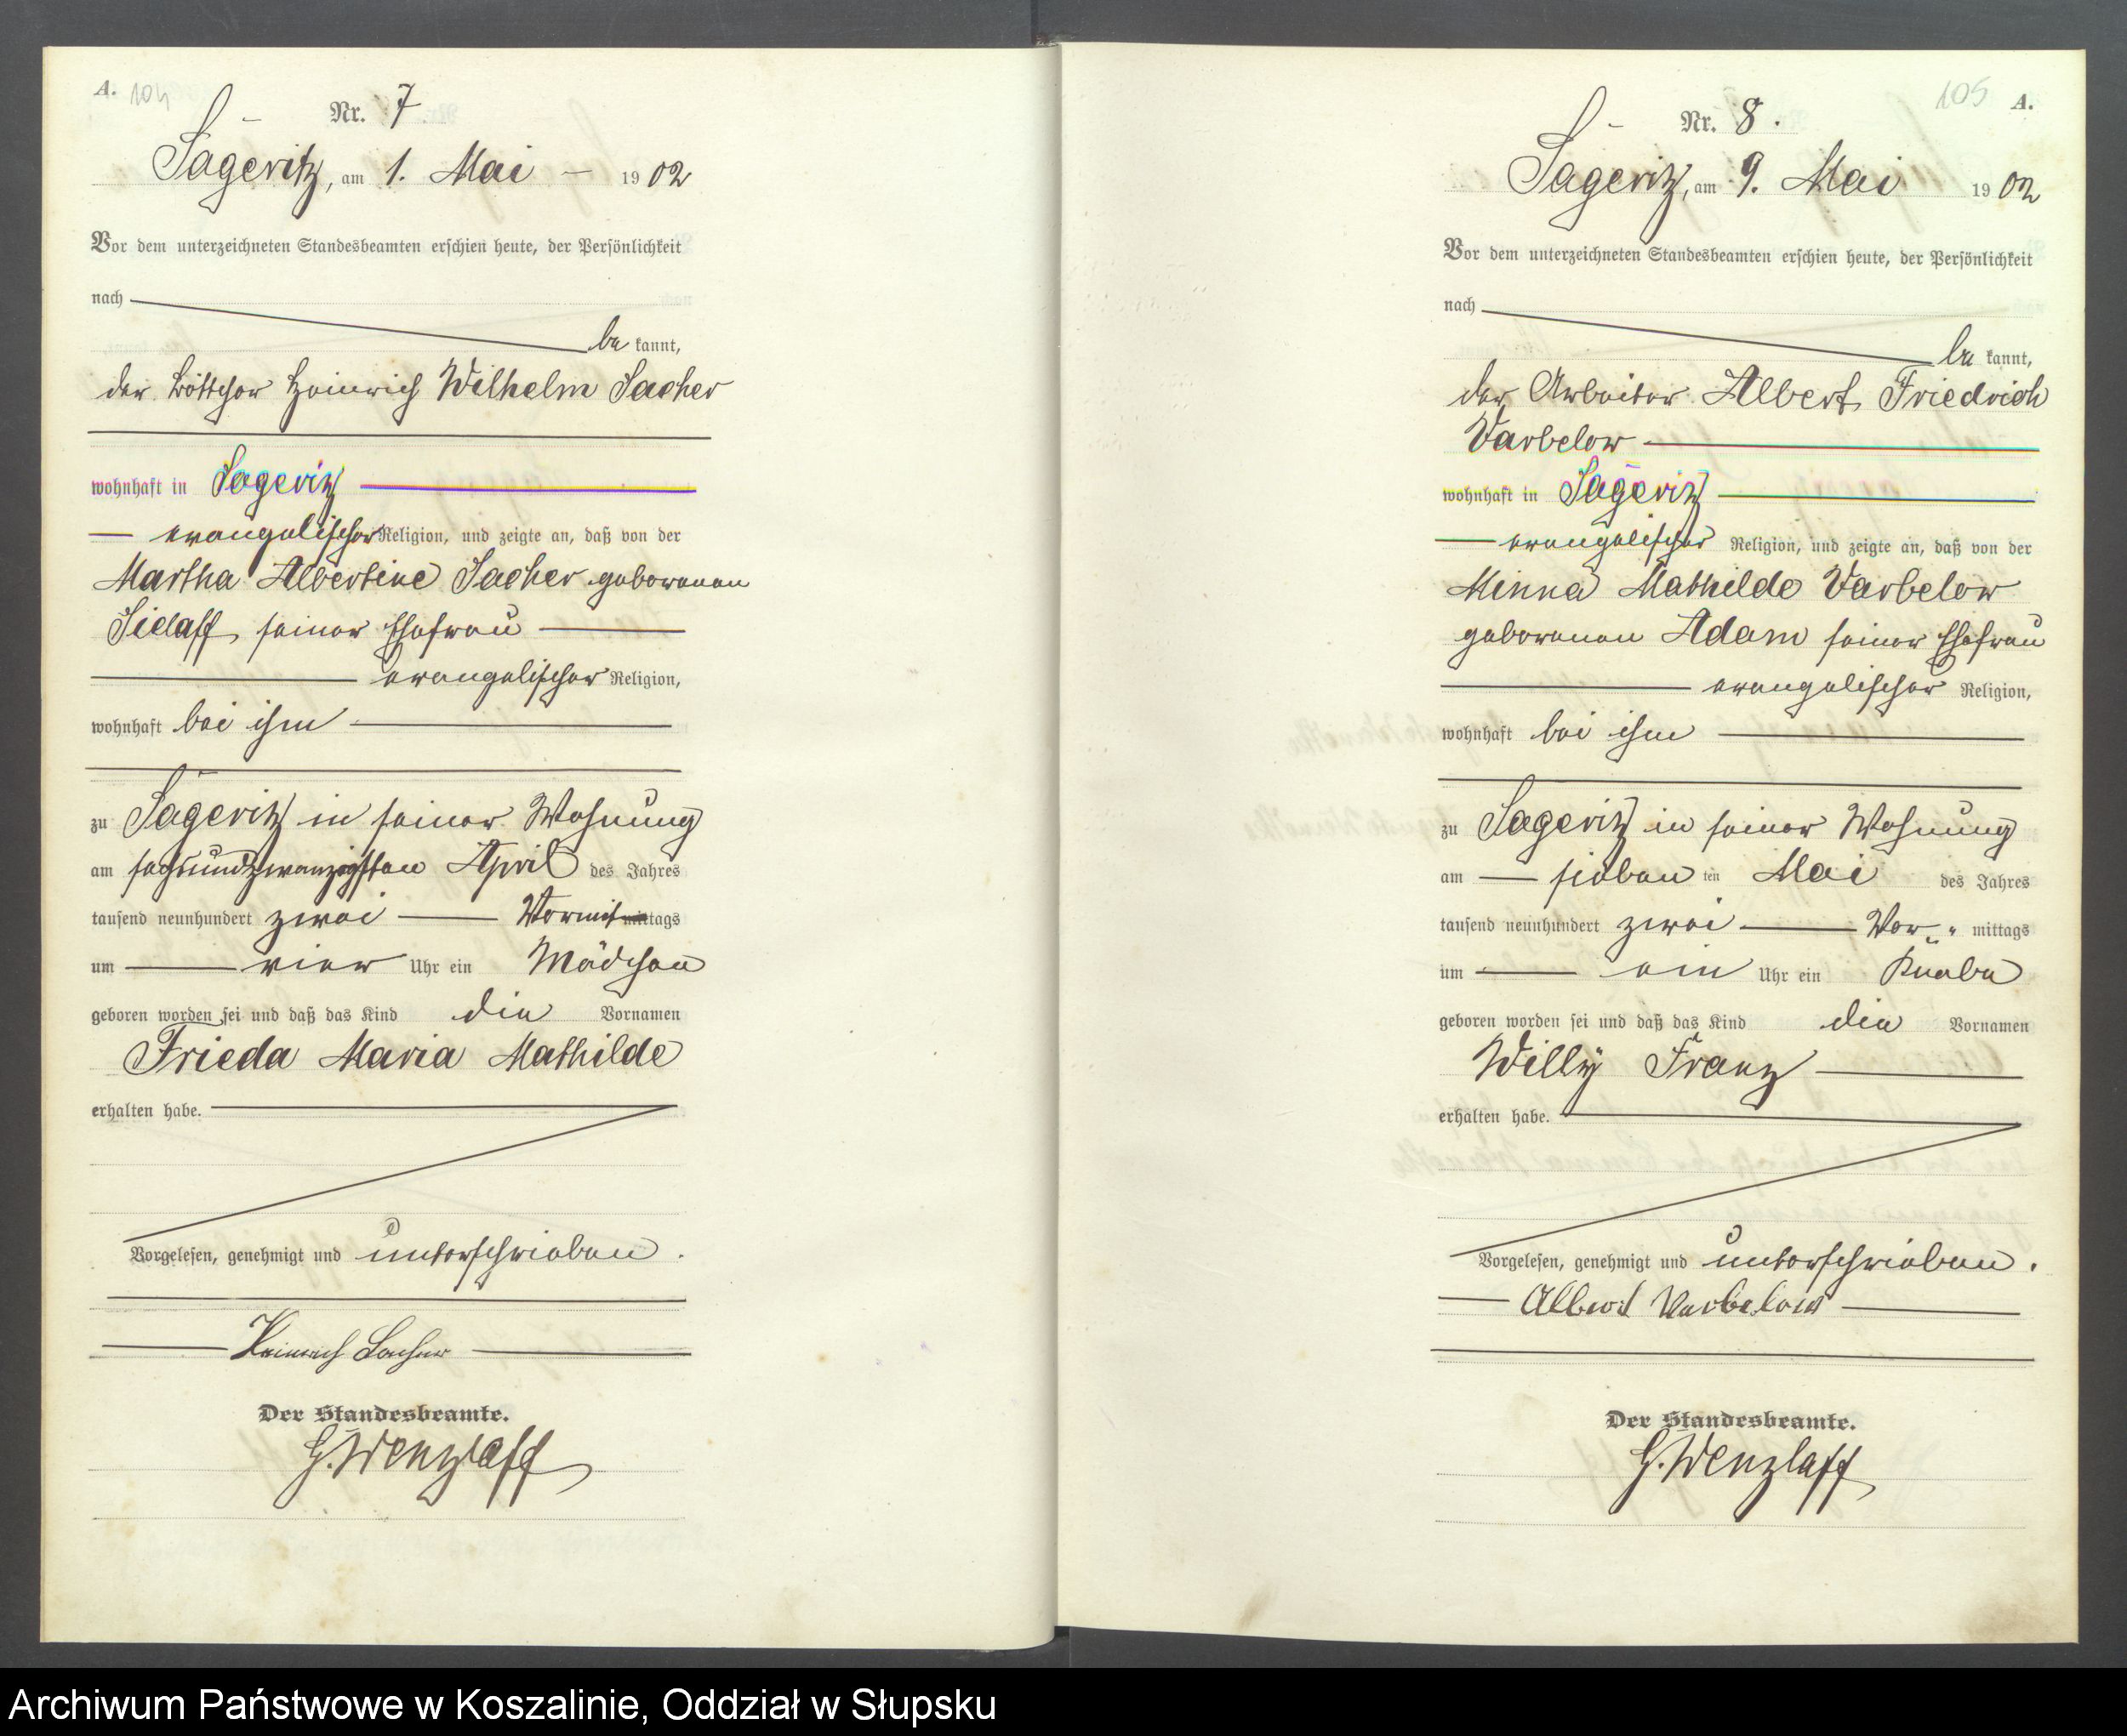 A. 104
Nr. 7
Sageritz, am 1. Mai 1902
Vor dem unterzeichneten Standesbeamten erschien heute, der Persönlichkeit
nach
be kannt,
der Böttcher Heinrich Wilhelm Sacher
wohnhaft in Sageritz
evangelischer Religion, und zeigte an, daß von der
Martha Albertine Sacher geborenen
Sielaff, seiner Ehefrau
evangelischer Religion,
wohnhaft bei ihm
zu Sageritz in seiner Wohnung
am sechsundzwanzigsten April des Jahres
tausend neunhundert zwei Vormittags
um vier Uhr ein Mädchen
geboren worden sei und daß das Kind die Vornamen
Frieda Maria Mathilde
erhalten habe.
Vorgelesen, genehmigt und unterschrieben.
Heinrich Sacher
Der Standesbeamte.
G. Wenzlaff
105 A.
Nr. 8.
Sageritz, am 9. Mai 1902
Vor dem unterzeichneten Standesbeamten erschien heute, der Persönlichkeit
nach
be kannt,
der Arbeiter Albert Friedrich
Varbelow
wohnhaft in Sageritz
evangelischer Religion, und zeigte an, daß von der
Minna Mathilde Varbelow
geborenen Adam seiner Ehefrau
evangelischer Religion,
wohnhaft bei ihm
zu Sageritz in seiner Wohnung
am sieben ten Mai des Jahres
tausend neunhundert zwei Vor- mittags
um ein Uhr ein Knabe
geboren worden sei und daß das Kind die Vornamen
Willÿ Franz
erhalten habe.
Vorgelesen, genehmigt und unterschrieben.
Albert Varbelow
Der Standesbeamte.
G. Wenzlaff
Archiwum Państwowe w Koszalinie, Oddział w Słupsku